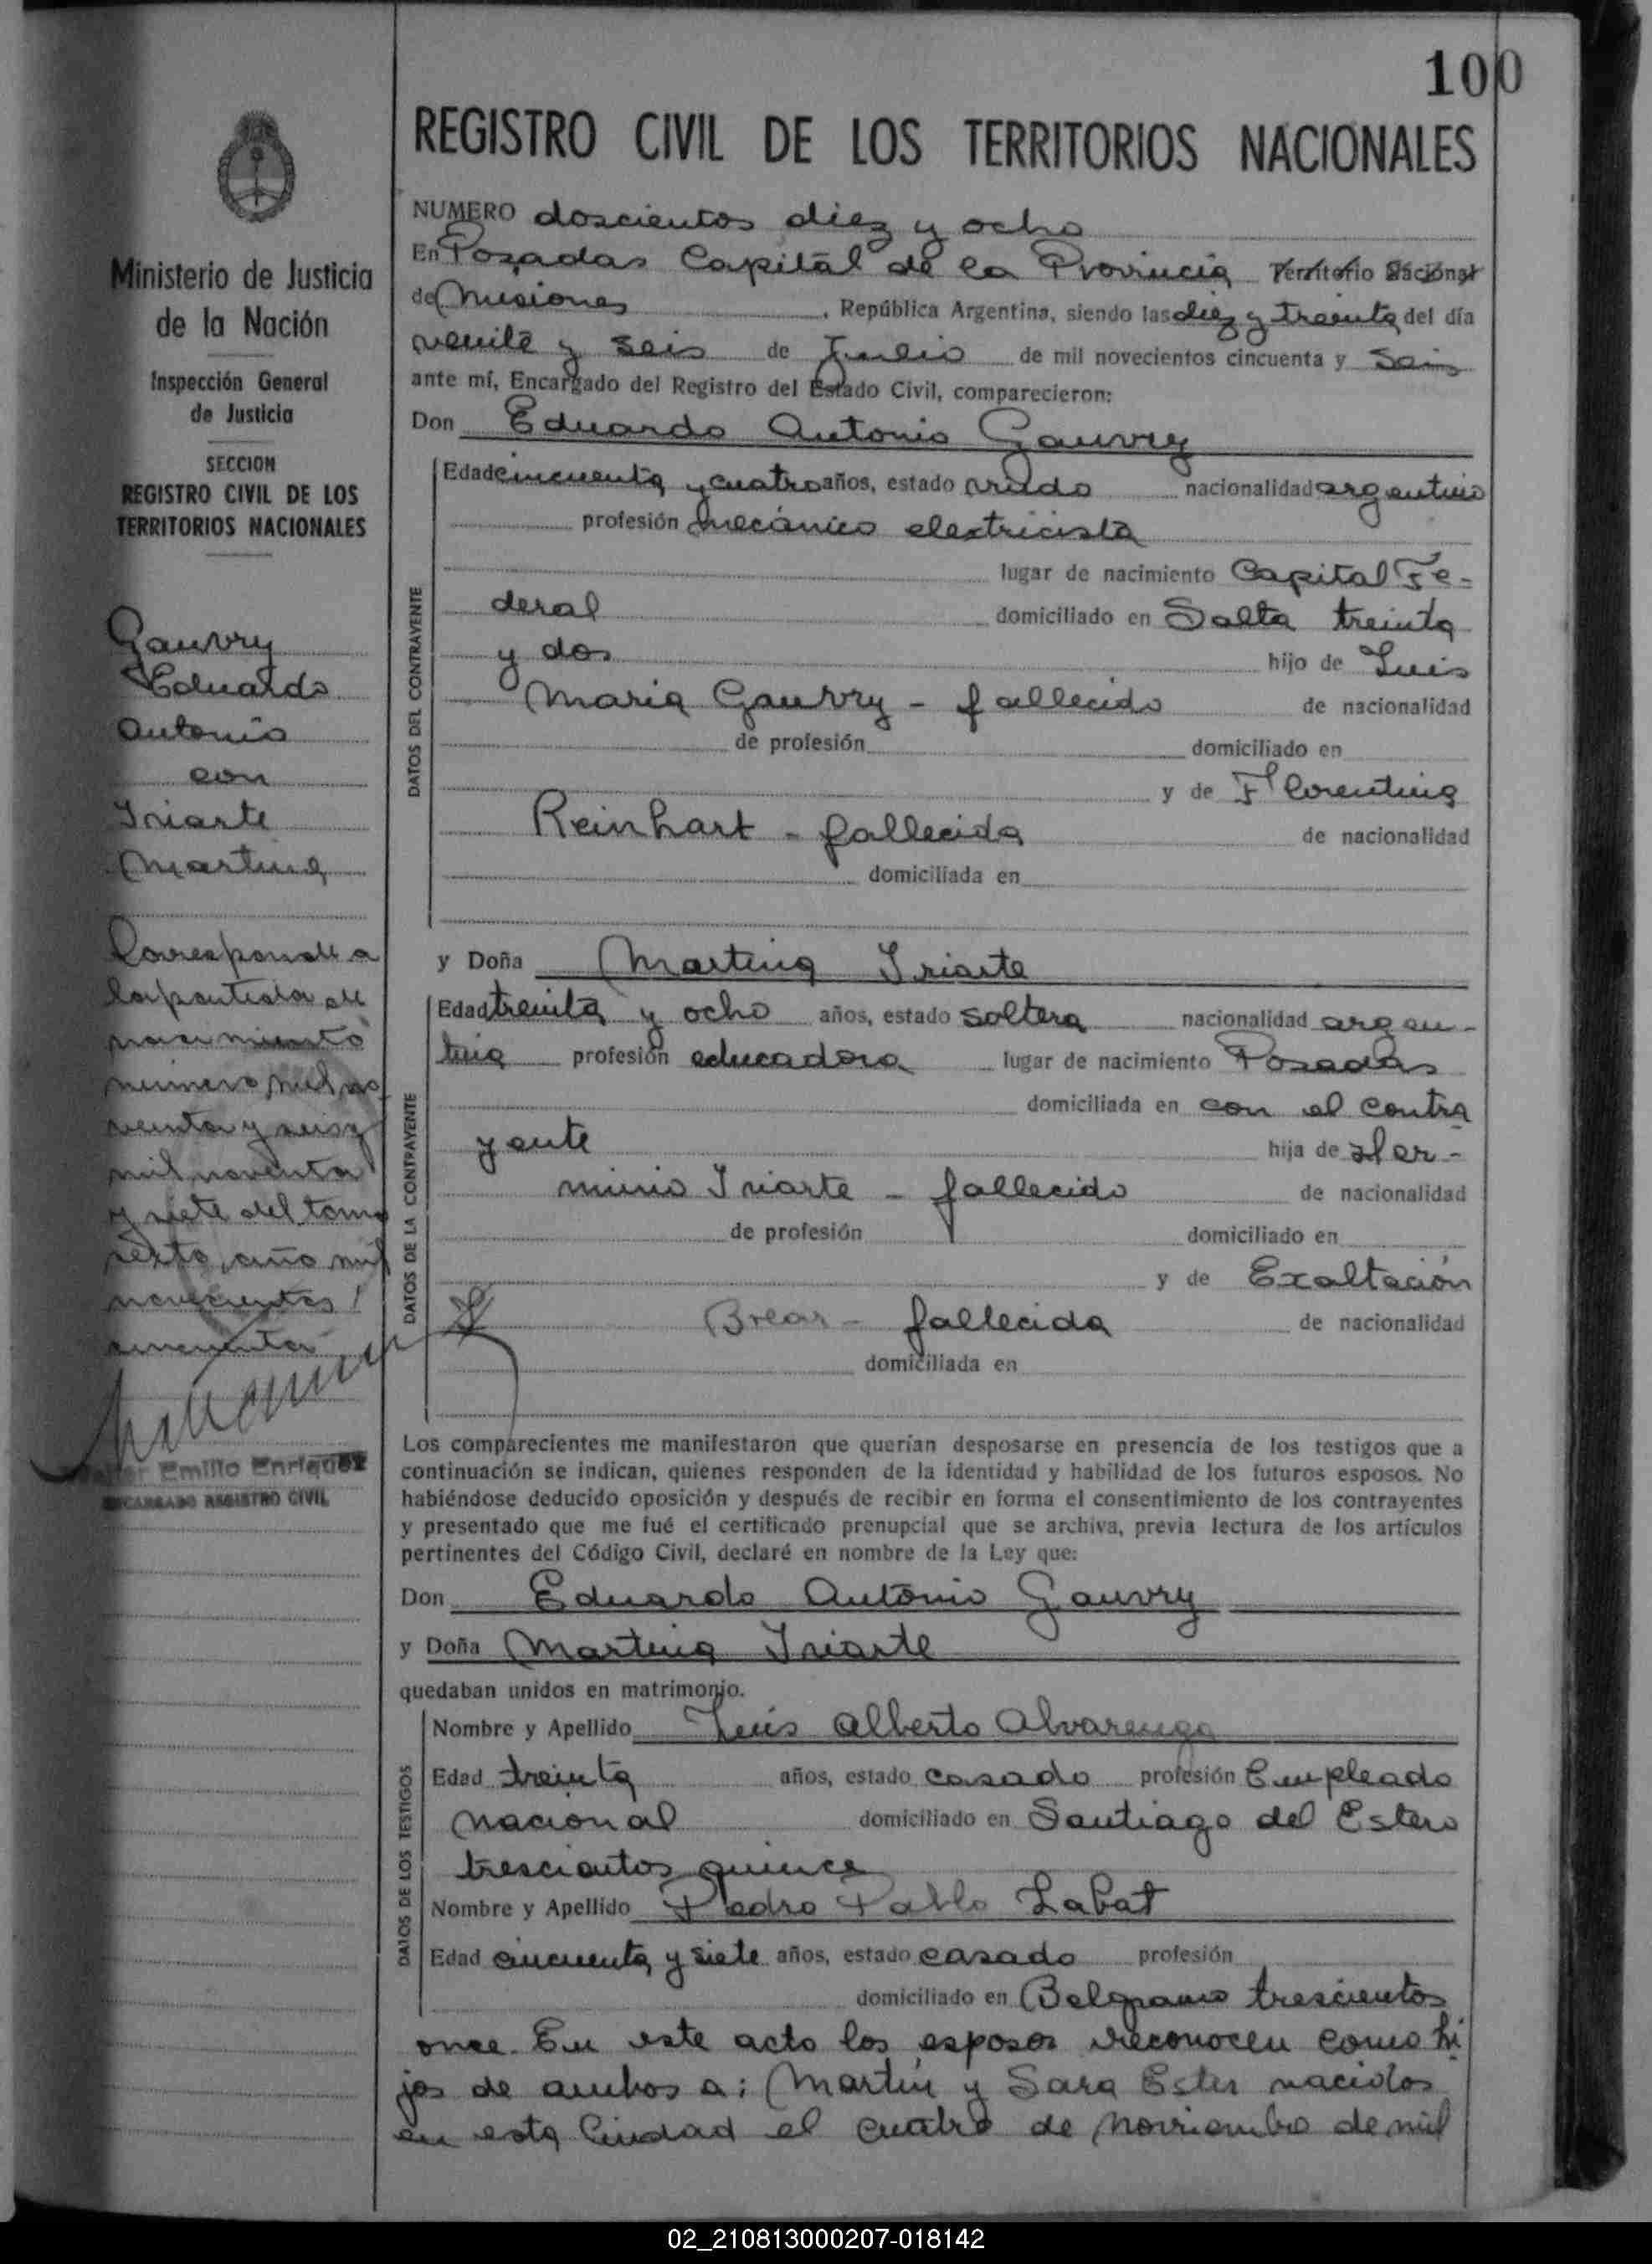 100
REGISTRO CIVIL DE LOS TERRITORIOS NACIONALES
Ministerio de Justicia
de la Nación
Inspección General
de Justicia
SECCION
REGISTRO CIVIL DE LOS
TERRITORIOS NACIONALES
Gauvry
Eduardo
Antonio
con
Iriarte
Martina
Corresponde a
la partida de
nacimiento
número mil no
venta y seis y
mil noventa
y siete del tomo
sexto, año mil
novecientos
cincuenta
Emilio Enriquez
ENCARGADO REGISTRO CIVIL
NUMERO doscientos diez y ocho
En Posadas Capital de la Provincia Territorio Nacional
de Misiones , República Argentina, siendo las diez y treinta del día
veinte y seis de Julio de mil novecientos cincuenta y seis
ante mí, Encargado del Registro del Estado Civil, comparecieron:
Don Eduardo Antonio Gauvry
DATOS DEL CONTRAYENTE
Edad cincuenta y cuatro años, estado viudo nacionalidad argentino
profesión mecánico electricista
lugar de nacimiento Capital Fe-
deral domiciliado en Salta treinta
y dos hijo de Luis
Maria Gauvry - fallecido de nacionalidad
de profesión domiciliado en
y de Florentina
Reinhart - fallecida de nacionalidad
domiciliada en
y Doña Martina Iriarte
DATOS DE LA CONTRAYENTE
Edad treinta y ocho años, estado soltera nacionalidad argen-
tina profesión educadora lugar de nacimiento Posadas
domiciliada en con el contra
yente hija de Her-
minio Iriarte - fallecido de nacionalidad
de profesión domiciliado en
y de Exaltación
- fallecida de nacionalidad
domiciliada en
Los comparecientes me manifestaron que querían desposarse en presencia de los testigos que a
continuación se indican, quienes responden de la identidad y habilidad de los futuros esposos. No
habiéndose deducido oposición y después de recibir en forma el consentimiento de los contrayentes
y presentado que me fué el certificado prenupcial que se archiva, previa lectura de los artículos
pertinentes del Código Civil, declaré en nombre de la Ley que:
Don Eduardo Antonio Gauvry
y Doña Martina Iriarte
quedaban unidos en matrimonio.
DATOS DE LOS TESTIGOS
Nombre y Apellido Luis Alberto Alvarenga
Edad treinta años, estado casado profesión Empleado
nacional domiciliado en Santiago del Estero
trescientos quince
Nombre y Apellido Pedro Pablo Labat
Edad cincuenta y siete años, estado casado profesión
domiciliado en Belgrano trescientos
once. En este acto los esposos reconocen como hi
jos de ambos a: Martín y Sara Ester nacidos
en esta Ciudad el cuatro de Noviembre de mil
02_210813000207-018142